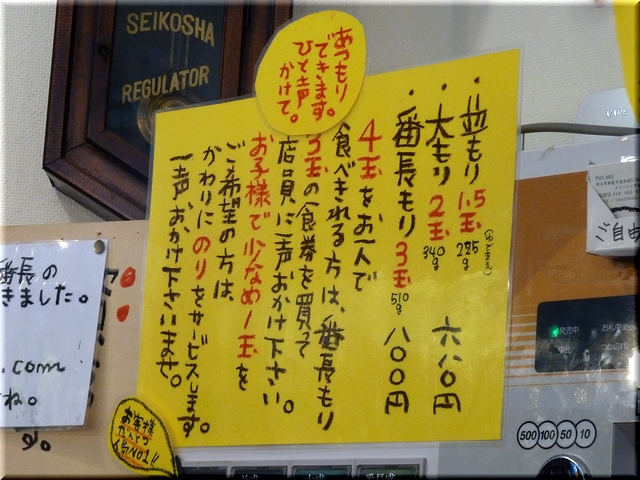 SEIKOSHA
REGULATOR
あつもり
できます。
ひと声
かけて。
・並もり 1.5玉 225g (ゆでまえ)
・大もり 2玉 340g 六八〇円
・番長もり 3玉 510g 八〇〇円
4玉をお一人で
食べきれる方は、番長もり
3玉の食券を買って
店員に一声おかけ下さい。
お子様で少なめ1玉を
ご希望の方は、
かわりにのりをサービスします。
一声、おかけ下さいませ。
番長の
きました。
.com
ね。
お客様
ご自由
発売中
中止
500 100 50 10